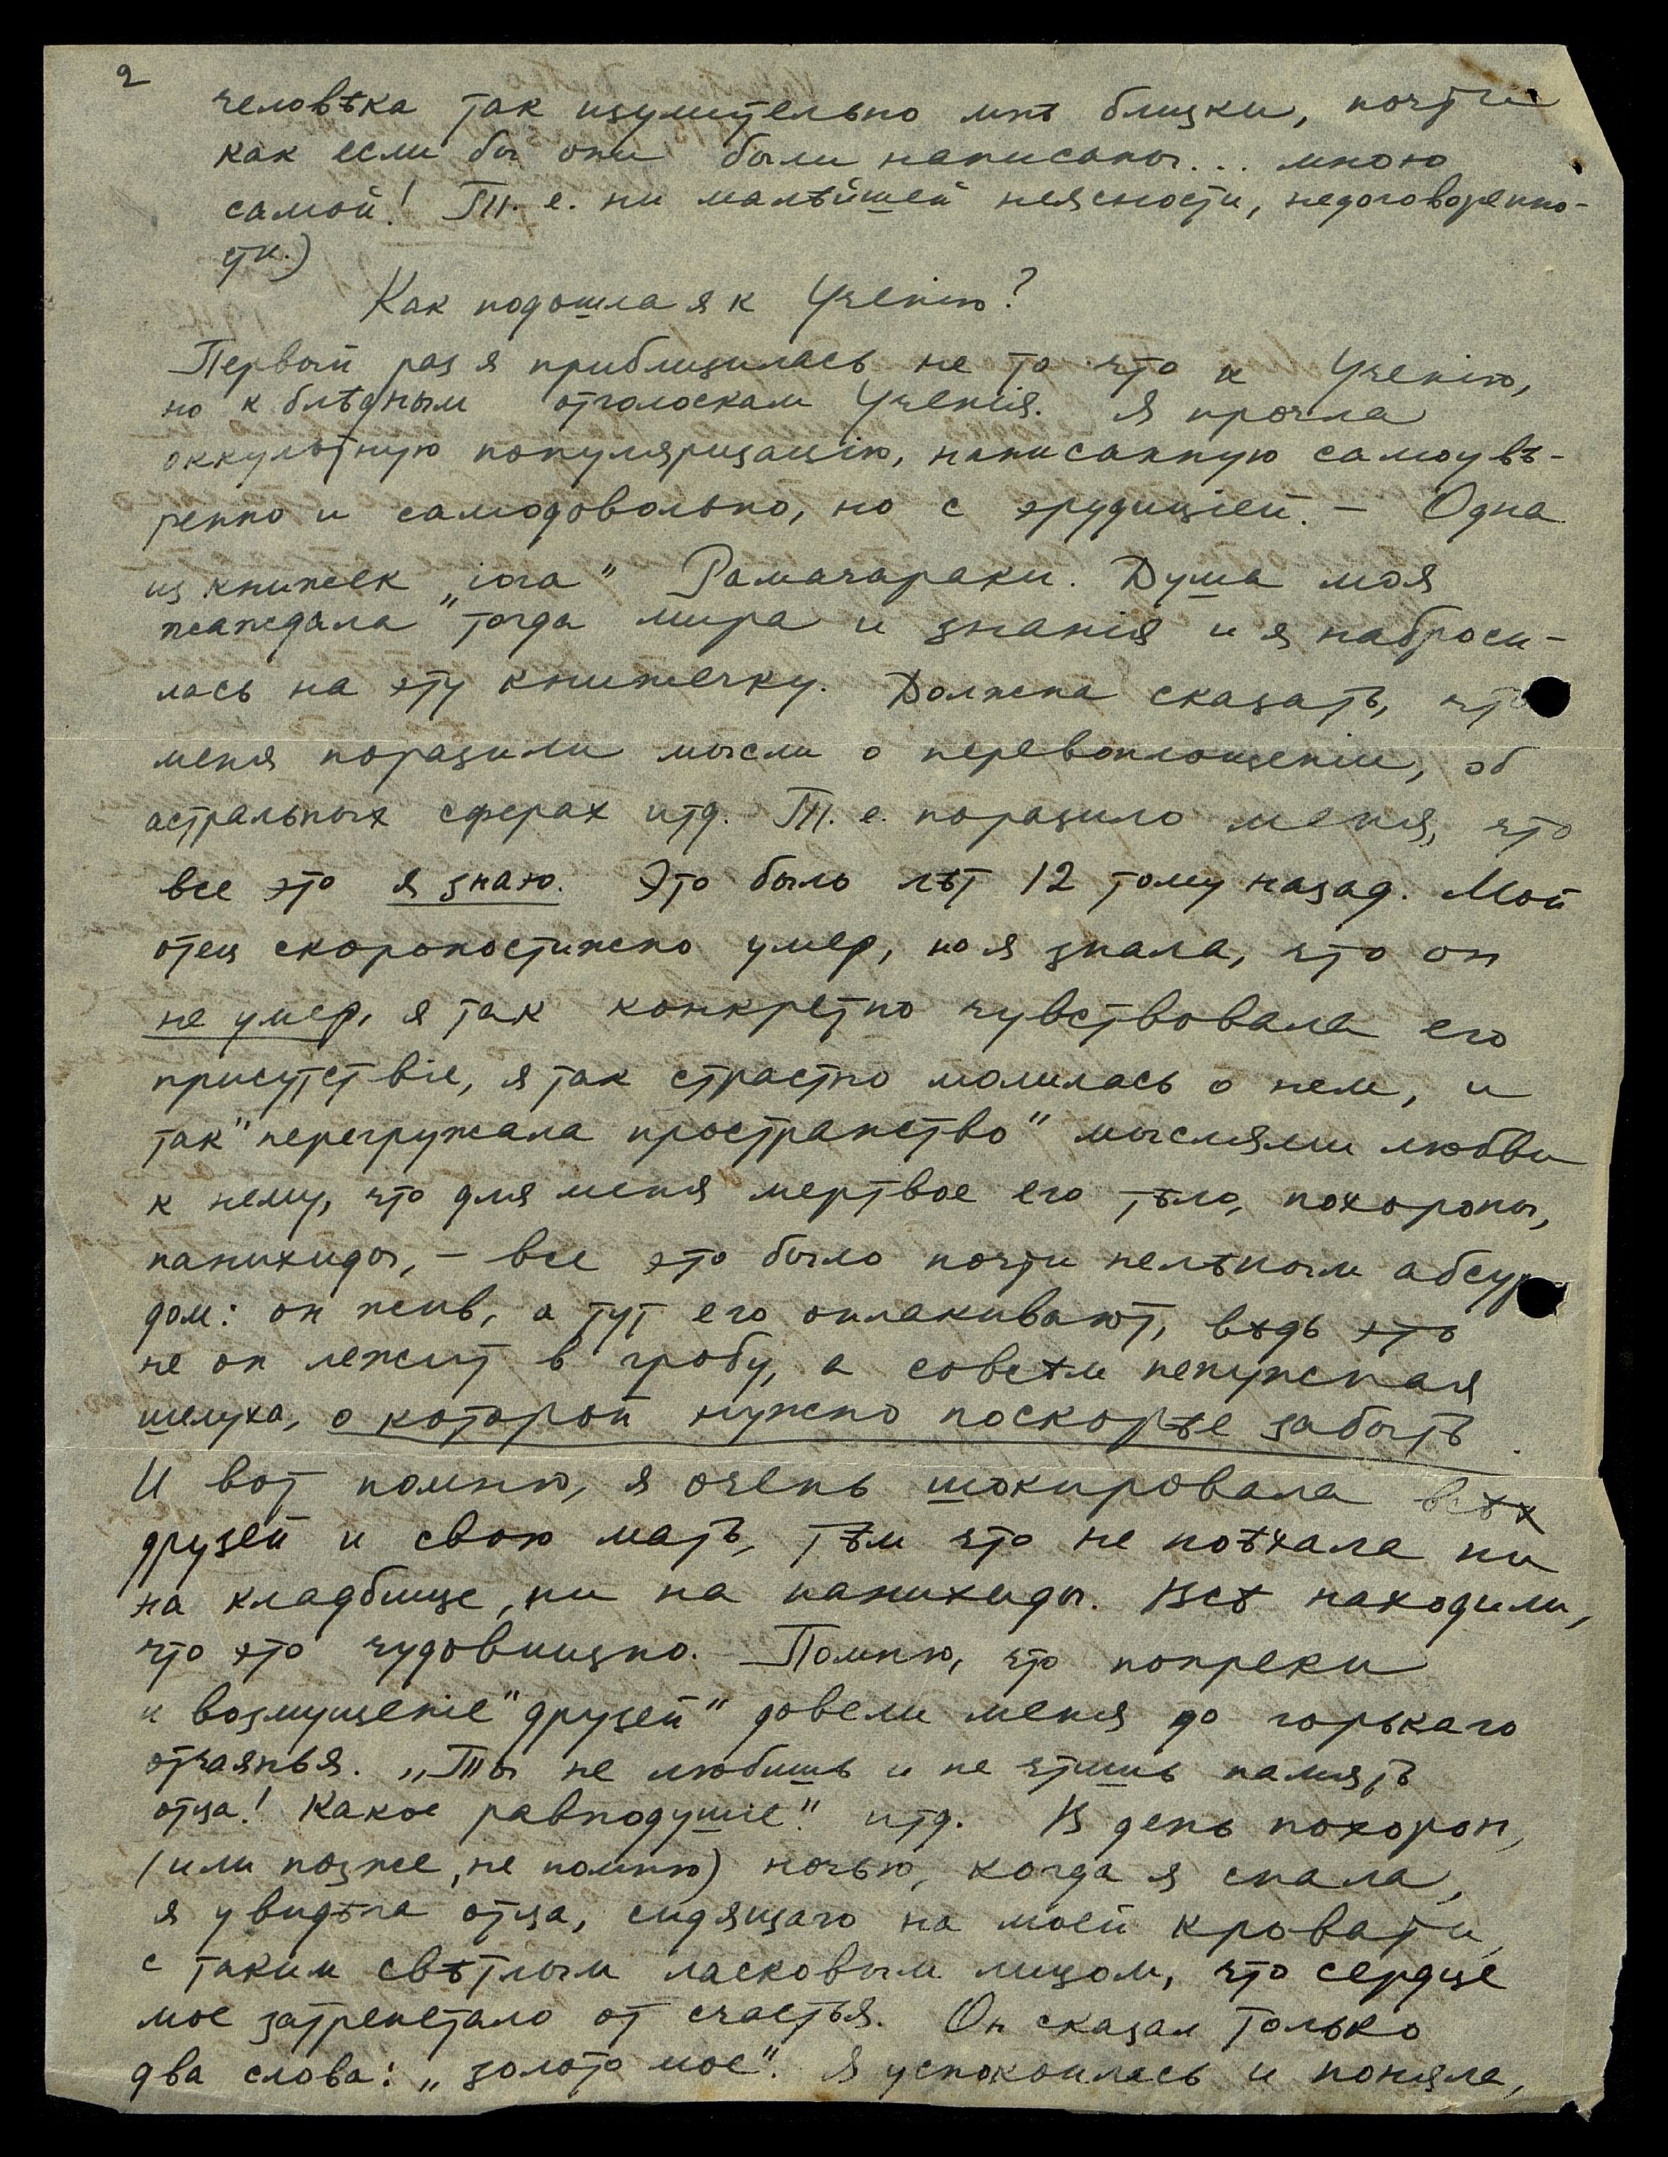 2
человѣка так изумительно мнѣ близки, почти
как если бы они были написаны... мною
самой! Т. е. ни малѣйшей неясности, недоговоренно-
сти.)
Как подошла я к Ученію?
Первый раз я приблизилась не то что к Ученію,
но к блѣдным отголоскам Ученія. Я прочла
оккультную популяризацію, написанную самоувѣ-
ренно и самодовольно, но с эрудиціей. – Одна
из книжек „іога" Рамачараки. Душа моя
жаждала тогда мира и знанія и я наброси-
лась на эту книжечку. Должна сказать, что
меня поразили мысли о перевоплощеніи, об
астральных сферах итд. Т. е. поразило меня, что
все это я знаю. Это было лѣт 12 тому назад. Мой
отец скоропостижно умер, но я знала, что он
не умер, я так конкретно чувствовала его
присутствіе, я так страстно молилась о нем, и
так "перегружала пространство" мыслями любви
к нему, что для меня мертвое его тѣло, похороны,
панихиды, – все это было почти нелѣпым абсур
дом: он жив, а тут его оплакивают, вѣдь это
не он лежит в гробу, а совсѣм ненужная
шелуха, о которой нужно поскорѣе забыть.
И вот помню, я очень шокировала всѣх
друзей и свою мать, тѣм что не поѣхала ни
на кладбище, ни на панихиды. Всѣ находили,
что это чудовищно. Помню, что попреки
и возмущеніе "друзей" довели меня до горькаго
отчаянья. „Ты не любишь и не чтишь память
отца! Какое равнодушіе" итд. В день похорон,
(или позже, не помню) ночью, когда я спала,
я увидѣла отца, сидящаго на моей кровати,
с таким свѣтлым ласковым лицом, что сердце
мое затрепетало от счастья. Он сказал только
два слова: „золото мое". Я успокоилась и поняла,